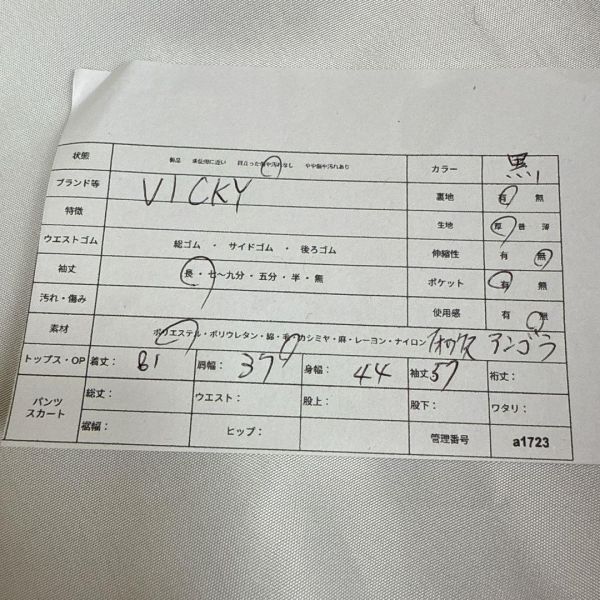 状態 新品 未使用に近い 目立った傷や汚れなし やや傷や汚れあり カラー 黒
ブランド等 VICKY 裏地 有 無
特徴 生地 厚 普 薄
ウエストゴム 総ゴム ・ サイドゴム ・ 後ろゴム 伸縮性 有 無
袖丈 長・七～九分・五分・半・無 ポケット 有 無
汚れ・傷み 使用感 有 無
素材 ポリエステル・ポリウレタン・綿・毛・カシミヤ・麻・レーヨン・ナイロン フォックス アンゴラ
トップス・OP 着丈: 81 肩幅: 37 身幅: 44 袖丈 57 裄丈:
パンツ スカート 総丈: ウエスト: 股上: 股下: ワタリ:
裾幅: ヒップ: 管理番号 a1723